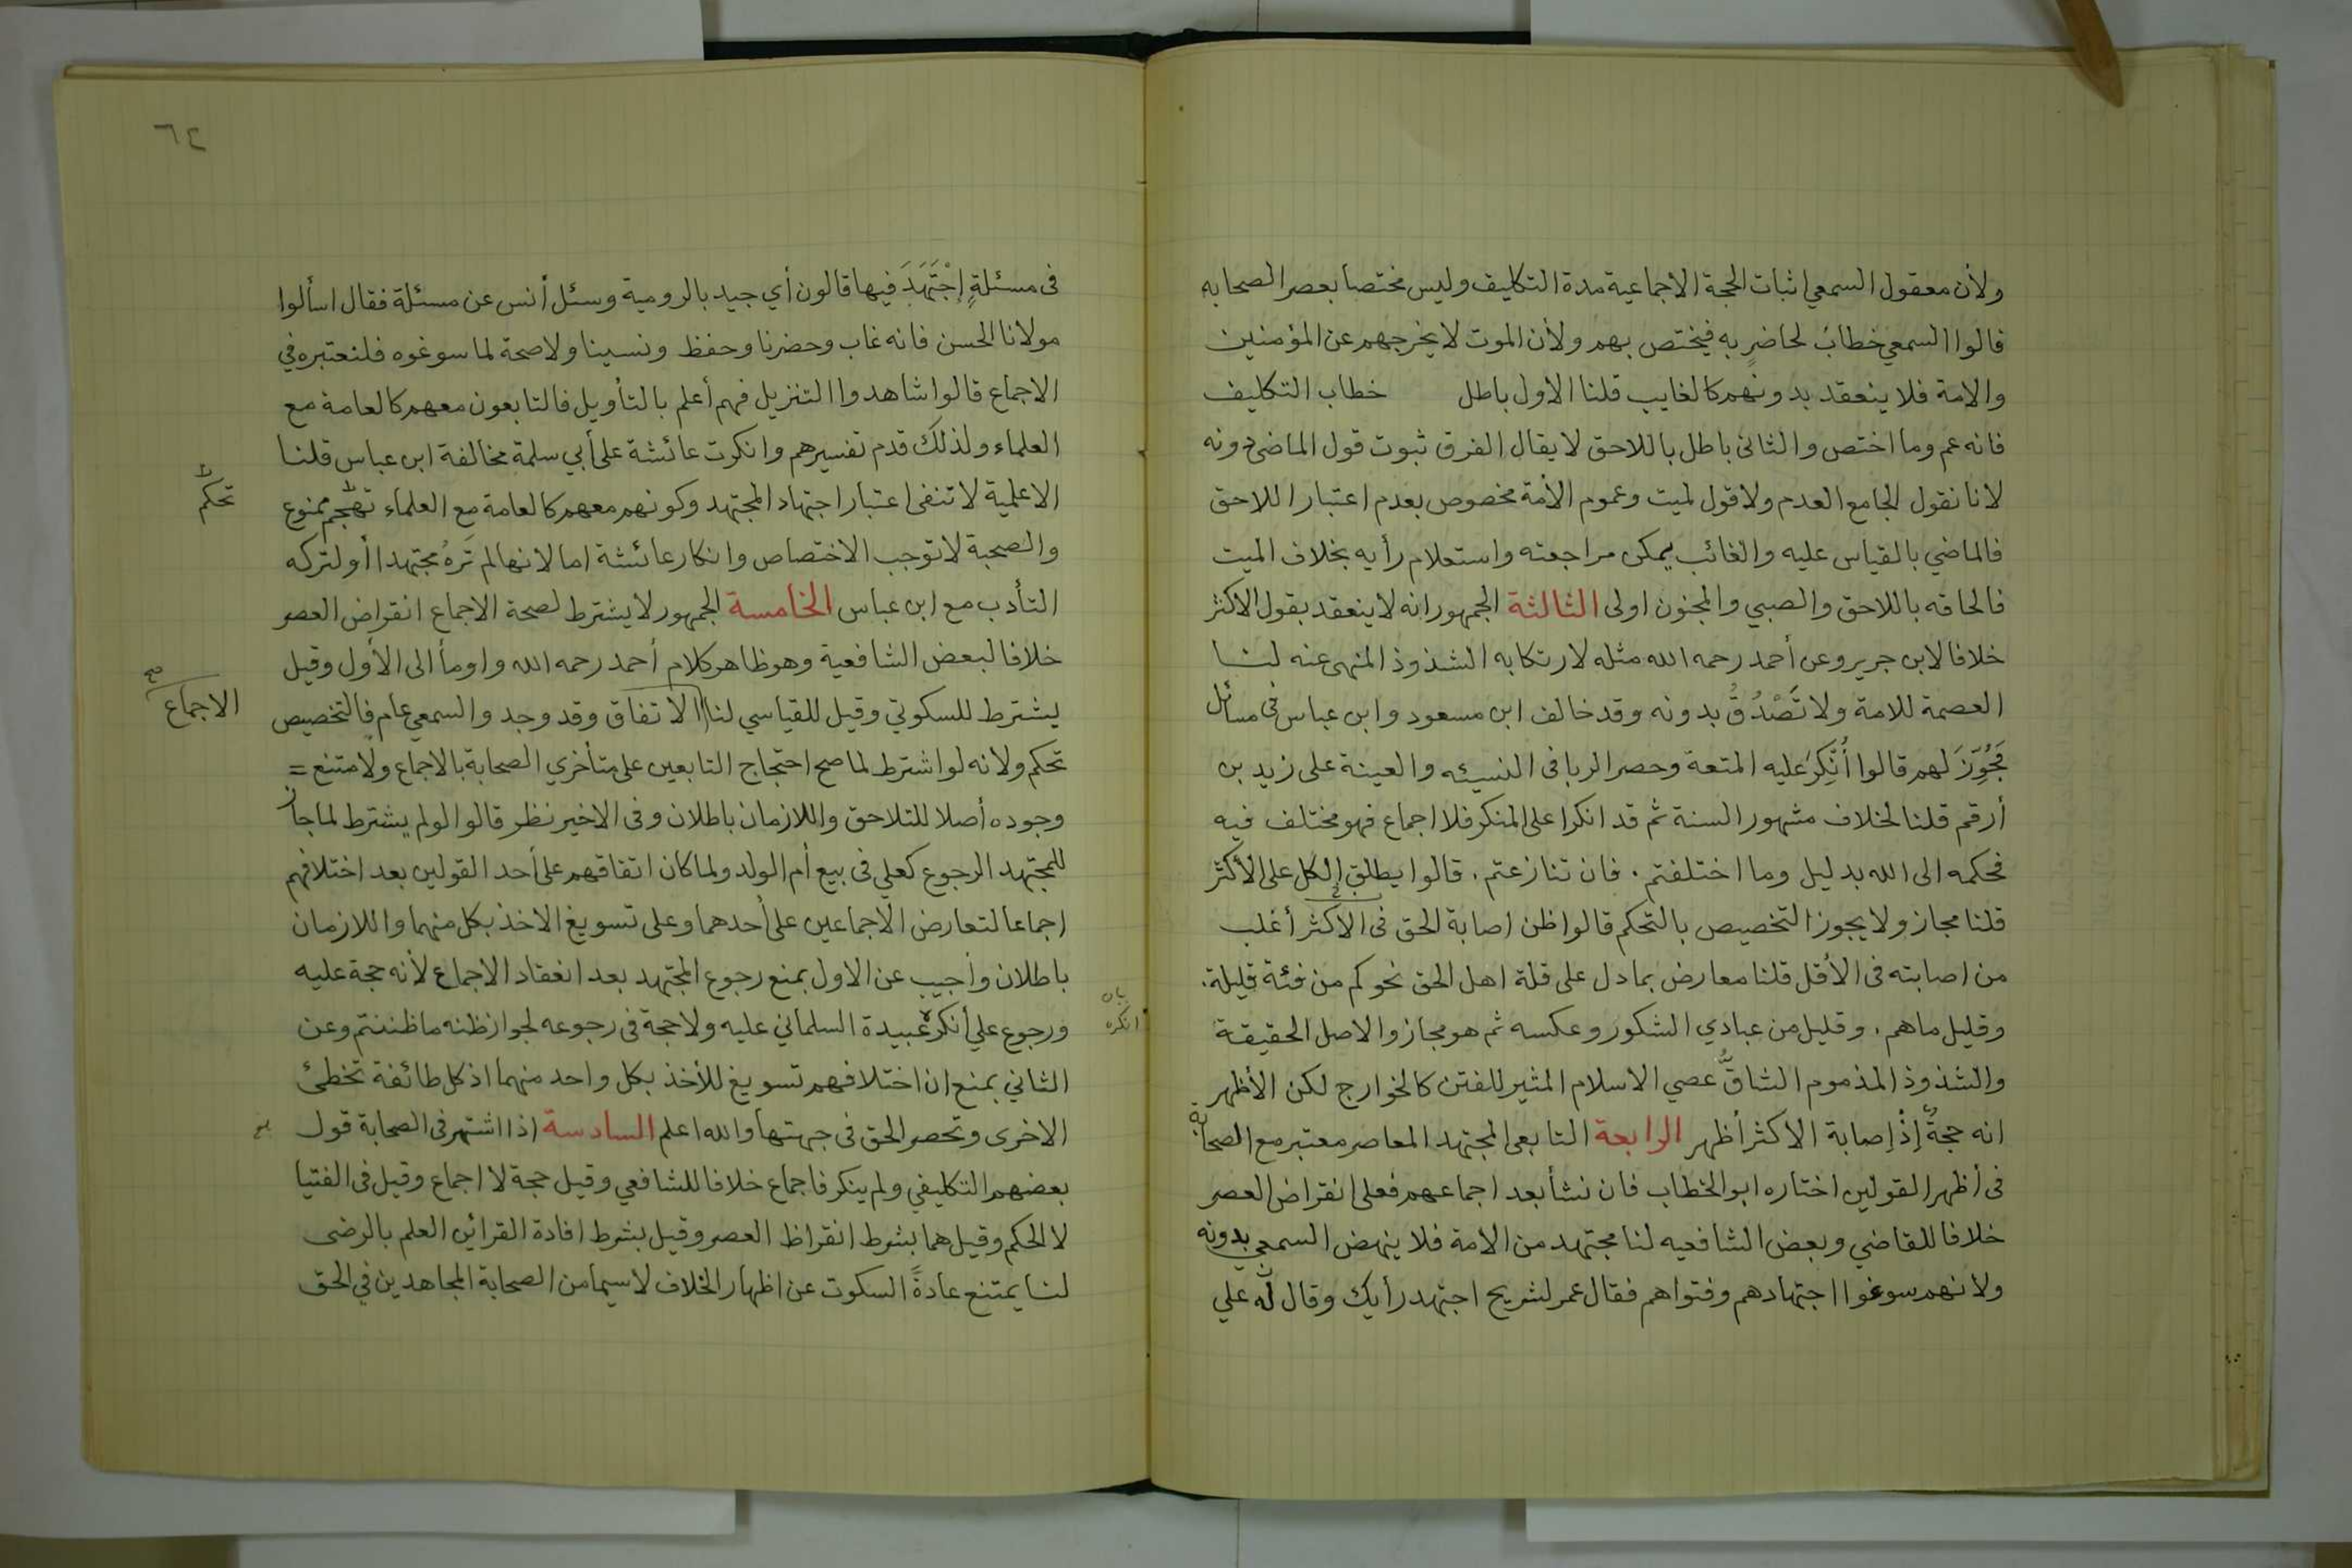 ولأن معقول السمعي اثبات الحجة الاجماعية مدة التكليف وليس مختصا بعصر الصحابه
قالوا السمعي خطابٌ لحاضرٍ به فيختص بهم ولأن الموت لا يخرجهم عن المؤمنين
والامة فلا ينعقد بدونهم كالغايب قلنا الاول باطل خطاب التكليف
فانه عم وما اختص والثانى باطل باللاحق لا يقال الفرق ثبوت قول الماضى دونه
لانا نقول الجامع العدم ولا قول لميت وعموم الأمة مخصوص بعدم اعتبار اللاحق
فالماضي بالقياس عليه والغائب يمكن مراجعته واستعلام رأيه بخلاف الميت
فالحاقه باللاحق والصبي والمجنون اولى الثالثة الجمهور انه لا ينعقد بقول الاكثر
خلافا لابن جرير وعن أحمد رحمه الله مثله لارتكابه الشذوذ المنهى عنه لنا
العصمة للامة ولا تَصْدُقُ بدونه وقد خالف ابن مسعود وابن عباس فى مسائل
فَجُوِّزَ لهم قالوا أُنكِرَ عليه المتعة وحصر الربا فى النسيئه والعينة على زيد بن
أرقم قلنا لخلاف مشهور السنة ثم قد انكرا على المنكر فلا اجماع فهو مختلف فيه
فحكمه الى الله بدليل وما اختلفتم . فان تنازعتم . قالوا يطلق الكل على الأكثر
قلنا مجاز ولا يجوز التخصيص بالتحكم قالوا ظن اصابة الحق فى الاكثر أغلب
من اصابته فى الأقل قلنا معارض بما دل على قلة اهل الحق نحو كم من فئة قليلة .
وقليل ما هم . وقليل من عبادي الشكور وعكسه ثم هو مجاز والاصل الحقيقة
والشذوذ المذموم الشاقُّ عصي الاسلام المثير للفتن كالخوارج لكن الأظهر
انه حجةٌ إذْ إصابة الاكثر أظهر الرابعة التابعى المجتهد المعاصر معتبر مع الصحابة
فى أظهر القولين اختاره ابو الخطاب فان نشأ بعد اجماعهم فعلى انقراض العصر
خلافا للقاضي وبعض الشافعيه لنا مجتهد من الامة فلا ينهض السمعي بدونه
ولانهم سوغوا اجتهادهم وفتواهم فقال عمر لشريح اجتهد رأيك وقال له علي
٦٤
فى مسئلةٍ إجْتَهَدَ فيها قالون أي جيد بالرومية وسئل أنس عن مسئلة فقال اسألوا
مولانا الحسن فانه غاب وحضرنا وحفظ ونسينا ولا صحة لما سوغوه فلنعتبره في
الاجماع قالوا شاهدوا التنزيل فهم أعلم بالتأويل فالتابعون معهم كالعامة مع
العلماء ولذلك قدم تفسيرهم وانكرت عائشة على أبي سلمة مخالفة ابن عباس قلنا
الاعلمية لا تنفى اعتبار اجتهاد المجتهد وكونهم معهم كالعامة مع العلماء تهجم ممنوع
تحكم
والصحبة لا توجب الاختصاص وانكار عائشة اما لانها لم تَرهُ مجتهدا أو لتركه
التأدب مع ابن عباس الخامسة الجمهور لا يشترط لصحة الاجماع انقراض العصر
خلافا لبعض الشافعية وهو ظاهر كلام أحمد رحمه الله واومأ الى الأول وقيل
يشترط للسكوتي وقيل للقياسي لنا الاتفاق وقد وجد والسمعي عام فالتخصيص
الاجماع صح
تحكم ولانه لو اشترط لما صح احتجاج التابعين على متأخري الصحابة بالاجماع ولامتنع =
وجوده أصلا للتلاحق واللازمان باطلان وفى الاخير نظر قالوا لو لم يشترط لما جاز
للمجتهد الرجوع كعلي فى بيع أم الولد ولما كان اتفاقهم على أحد القولين بعد اختلافهم
اجماعا لتعارض الاجماعين على أحدهما وعلى تسويغ الاخذ بكل منهما واللازمان
باطلان وأجيب عن الاول بمنع رجوع المجتهد بعد انعقاد الاجماع لأنه حجة عليه
ورجوع علي أنكر عبيدة السلماني عليه ولا حجة فى رجوعه لجواز ظنه ما ظننتم وعن
انكره
الثاني بمنع ان اختلافهم تسويغ للأخذ بكل واحد منهما اذ كل طائفة تخطئ
الاخرى وتحصر الحق فى جهتها والله اعلم السادسة اذا اشتهر فى الصحابة قول
بعضهم التكليفي ولم ينكر فاجماع خلافا للشافعي وقيل حجة لا اجماع وقيل فى الفتيا
لا الحكم وقيل هما بشرط انقراظ العصر وقيل بشرط افادة القرائن العلم بالرضى
لنا يمتنع عادةً السكوت عن اظهار الخلاف لا سيما من الصحابة المجاهدين في الحق